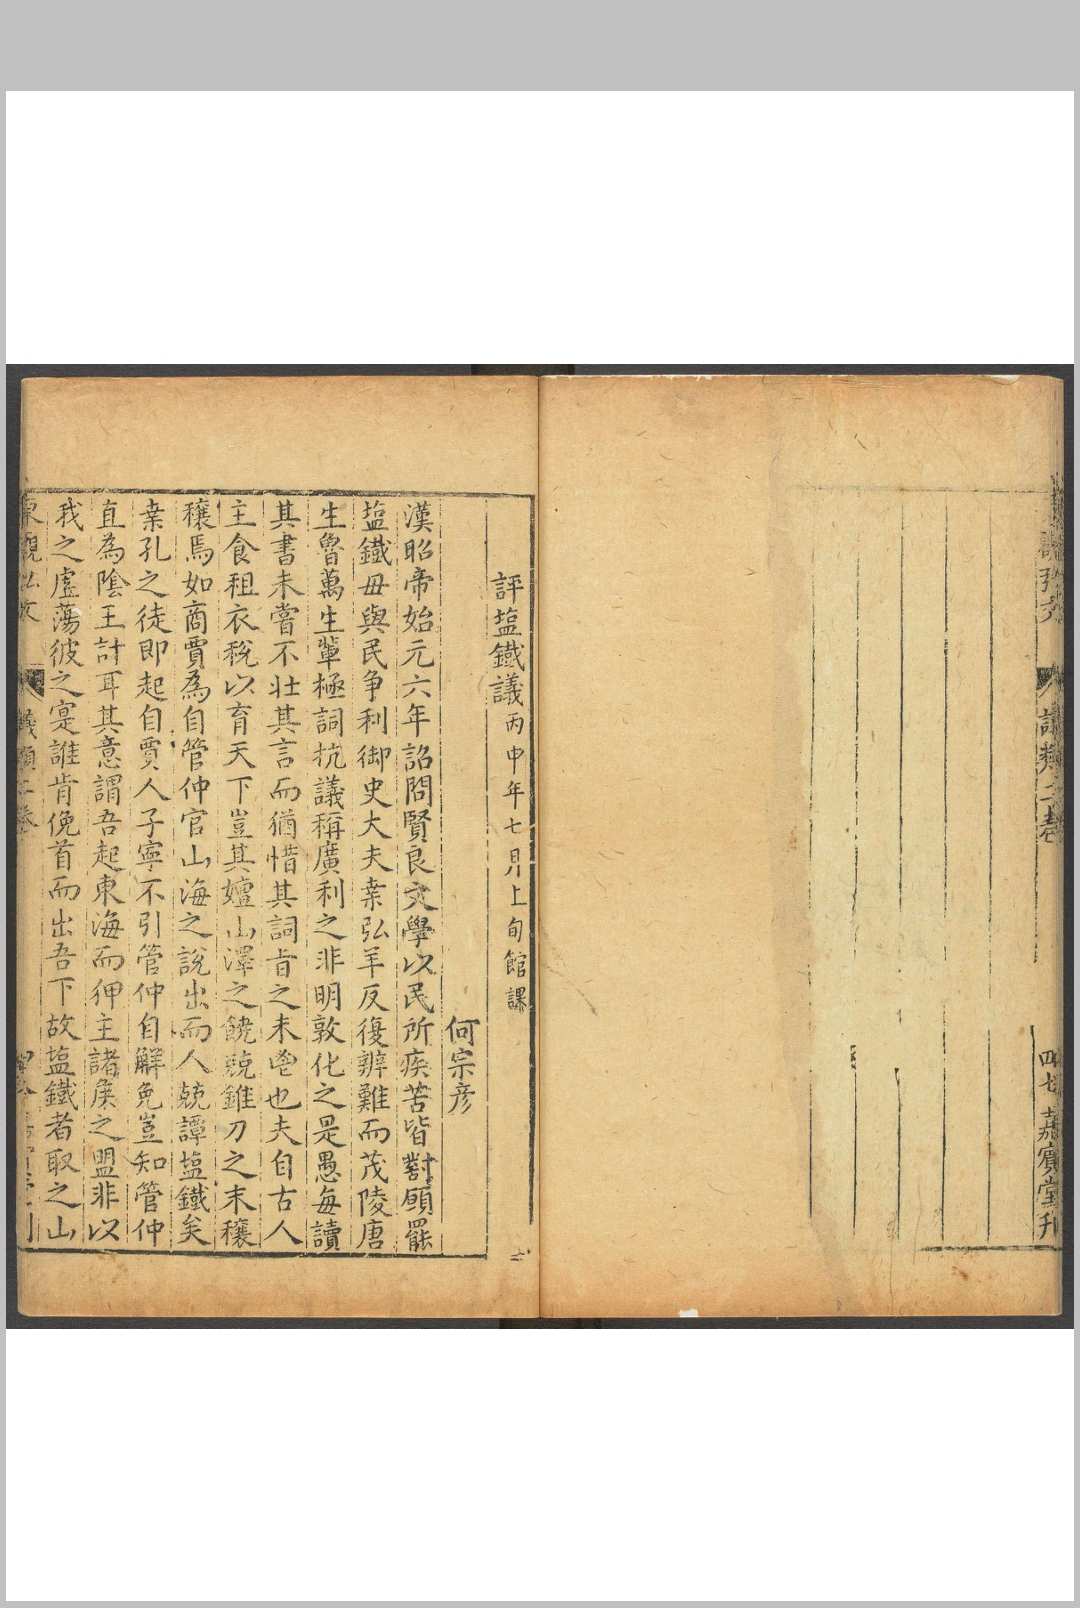 議類二卷
四七
嘉賓堂刊
評塩鐵議丙申年七月上旬館課
何宗彥
漢昭帝始元六年詔問賢良文學以民所疾苦皆對願罷
塩鐵毋與民争利御史大夫桒弘羊反復辨難而茂陵唐
生魯萬生軰極詞抗議稱廣利之非明敦化之是愚每讀
其書未嘗不壮其言而猶惜其詞旨之未鬯也夫自古人
主食租衣稅以育天下豈其嬗山澤之饒兢錐刀之末穰
穰焉如商賈為自管仲官山海之說出而人兢譚塩鐵矣
桒孔之徒即起自賈人子寧不引管仲自解免豈知管仲
直為陰王計耳其意謂吾起東海而狎主諸矦之盟非以
我之虛蕩彼之寔誰肯俛首而出吾下故塩鐵者取之山
東觀弘文
議類二卷